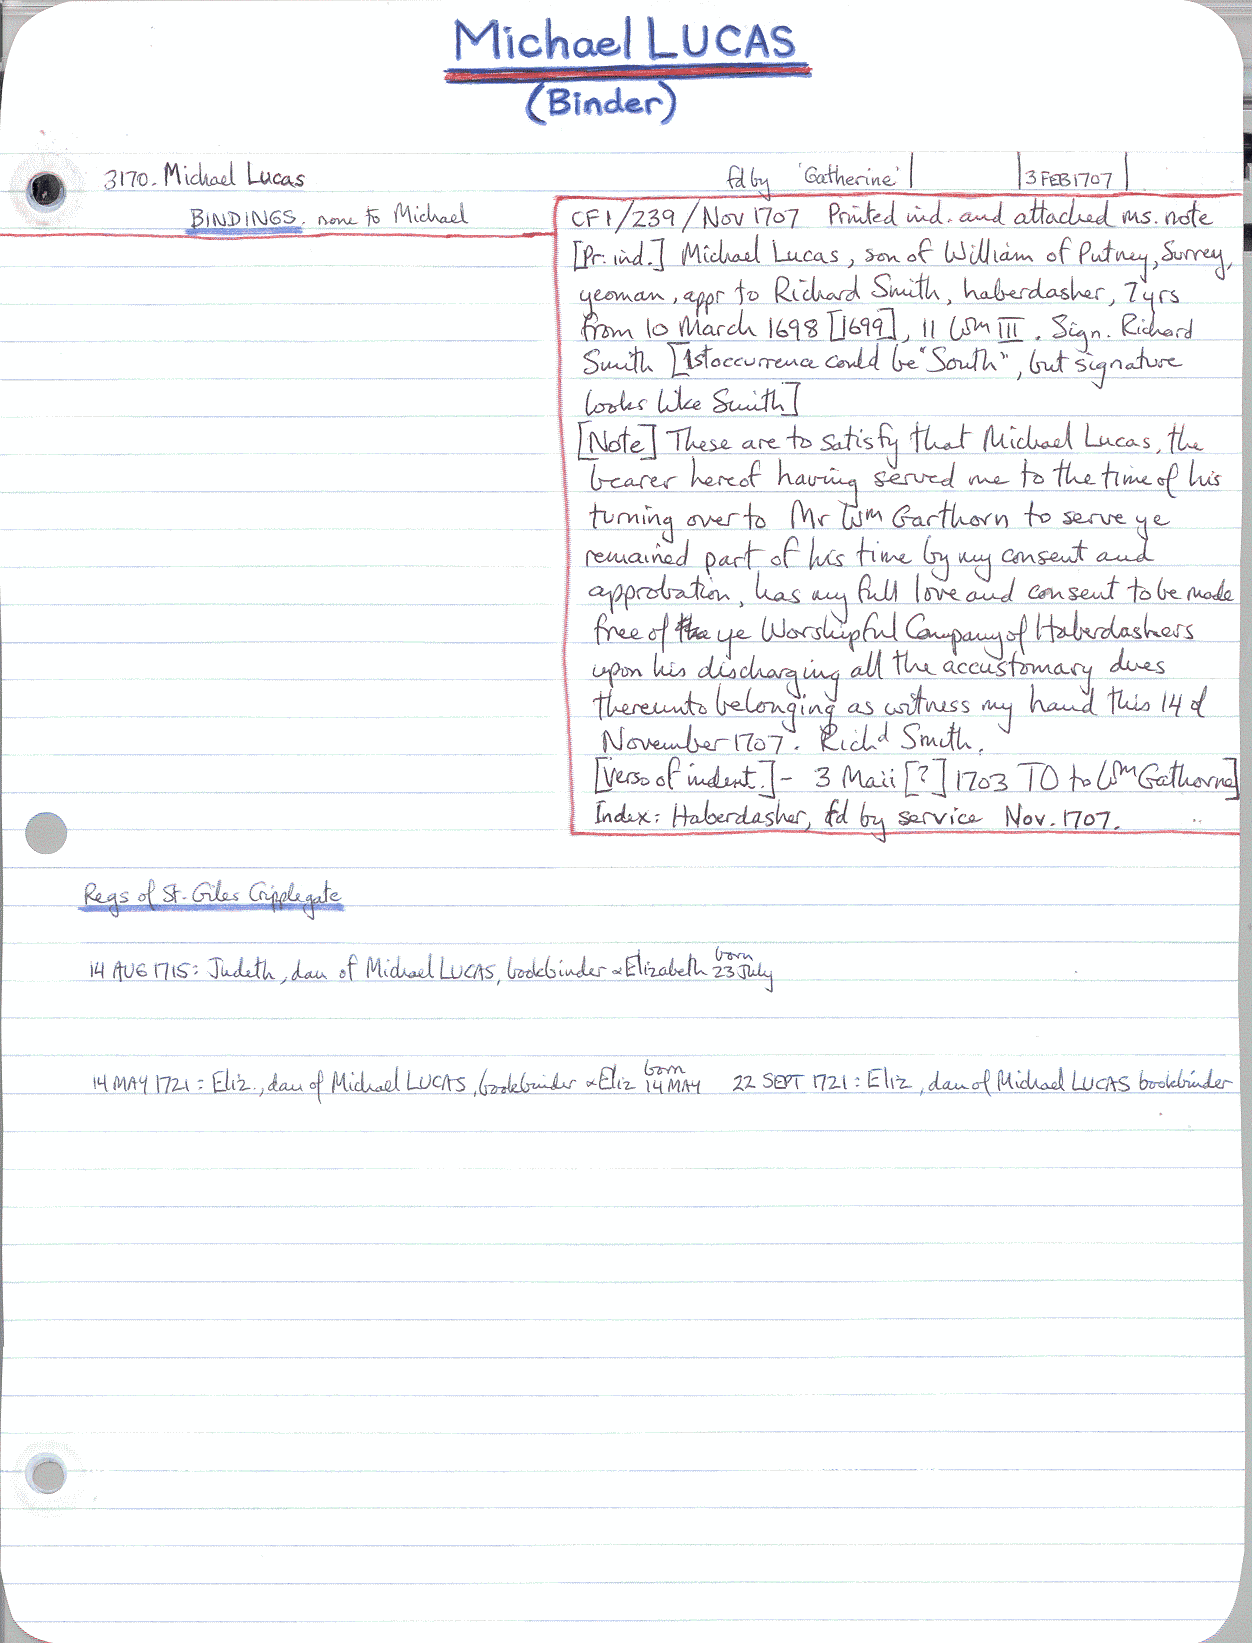 Michael LUCAS
(Binder)
3170. Michael Lucas fd by 'Gatherine' 3 FEB 1707
BINDINGS. none to Michael
CF1/239/Nov 1707 Printed ind. and attached ms. note
[Pr. ind.] Michael Lucas, son of William of Putney, Surrey,
yeoman, appr to Richard Smith, haberdasher, 7 yrs
from 10 March 1698 [1699], 11 Wm III. Sign. Richard
Smith [1st occurrence could be "South", but signature
looks like Smith]
[Note] These are to satisfy that Michael Lucas, the
bearer hereof having served me to the time of his
turning over to Mr Wm Garthorn to serve ye
remained part of his time by my consent and
approbation, has my full love and consent to be made
free of ye Worshipful Company of Haberdashers
upon his discharging all the accustomary dues
thereunto belonging as witness my hand this 14 of
November 1707. Richd Smith.
[Verso of indent.] - 3 Maii [?] 1703 TO to Wm Gathorne]
Index: Haberdasher, fd by service Nov. 1707.
Regs of St. Giles Cripplegate
14 AUG 1715: Judeth, dau of Michael LUCAS, bookbinder & Elizabeth born 23 July
14 MAY 1721: Eliz., dau of Michael LUCAS, bookbinder & Eliz born 14 MAY 22 SEPT 1721: Eliz, dau of Michael LUCAS bookbinder